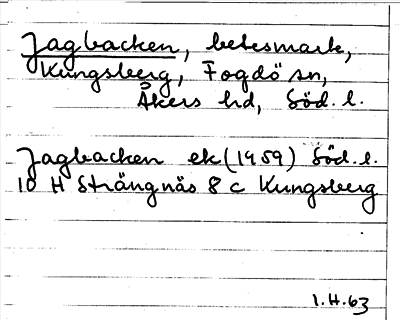 Jagbacken, betesmark,
Kungsberg, Fogdö sn,
Åkers hd, Söd. l.
Jagbacken ek (1959) Söd. l.
10 H Strängnäs 8 c Kungsberg
1.H.63